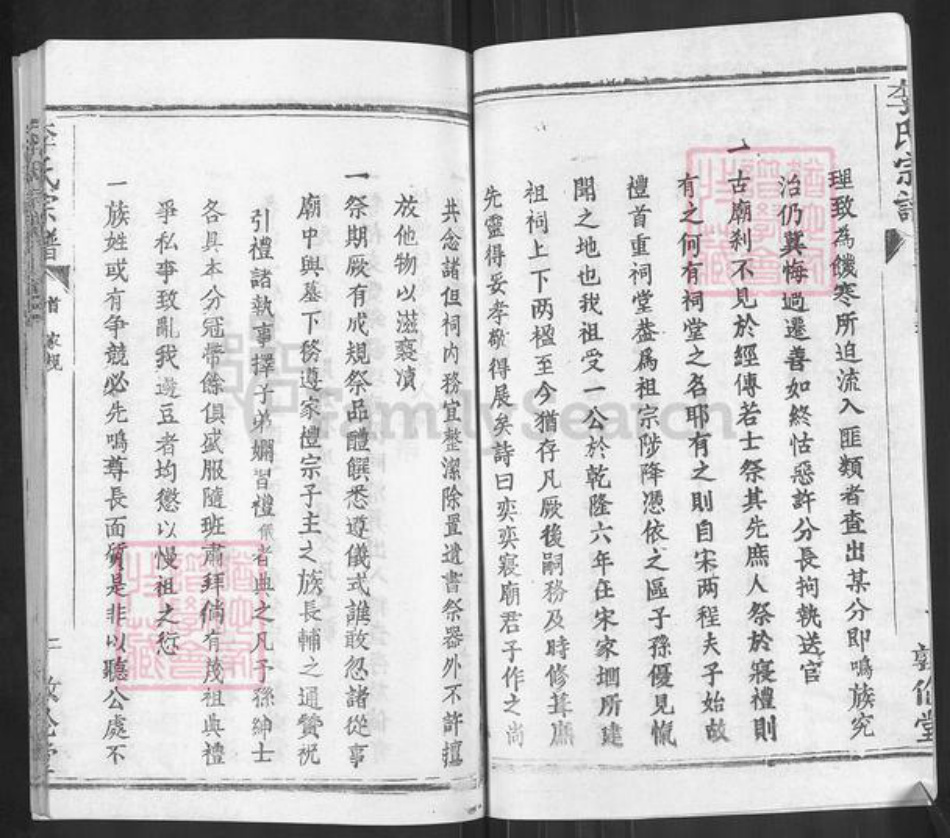 李氏宗譜
敦倫堂
理致為饑寒所迫流入匪類者查出某分即鳴族究
治仍冀悔過遷善如終怙惡許分長拘執送官
一古廟剎不見於經傳若士祭其先庶人祭於寢禮則
有之何有祠堂之名耶有之則自宋两程夫子始故
禮首重祠堂葢為祖宗陟降憑依之區子孫優見愾
聞之地也我祖受一公於乾隆六年在宋家堌所建
祖祠上下两楹至今猶存凡厥後嗣務及時修葺庶
先靈得妥孝敬得展矣詩曰奕奕寢廟君子作之尚
共念諸但祠内務宜整潔除置遺書祭器外不許擅
放他物以滋褻瀆
一祭期厥有成規祭品醴饌悉遵儀式誰敢忽諸從事
廟中與墓下務遵家禮宗子主之族長輔之通贊祝
引禮諸執事擇子弟嫻習禮儀者典之凡子孫紳士
各具本分冠帶餘俱盛服隨班肅拜倘有蔑祖典禮
爭私事致亂我籩豆者均懲以慢祖之愆
一族姓或有争競必先鳴尊長面質是非以聽公處不
李氏宗譜
首 家規
二
敦倫堂
FamilySearch